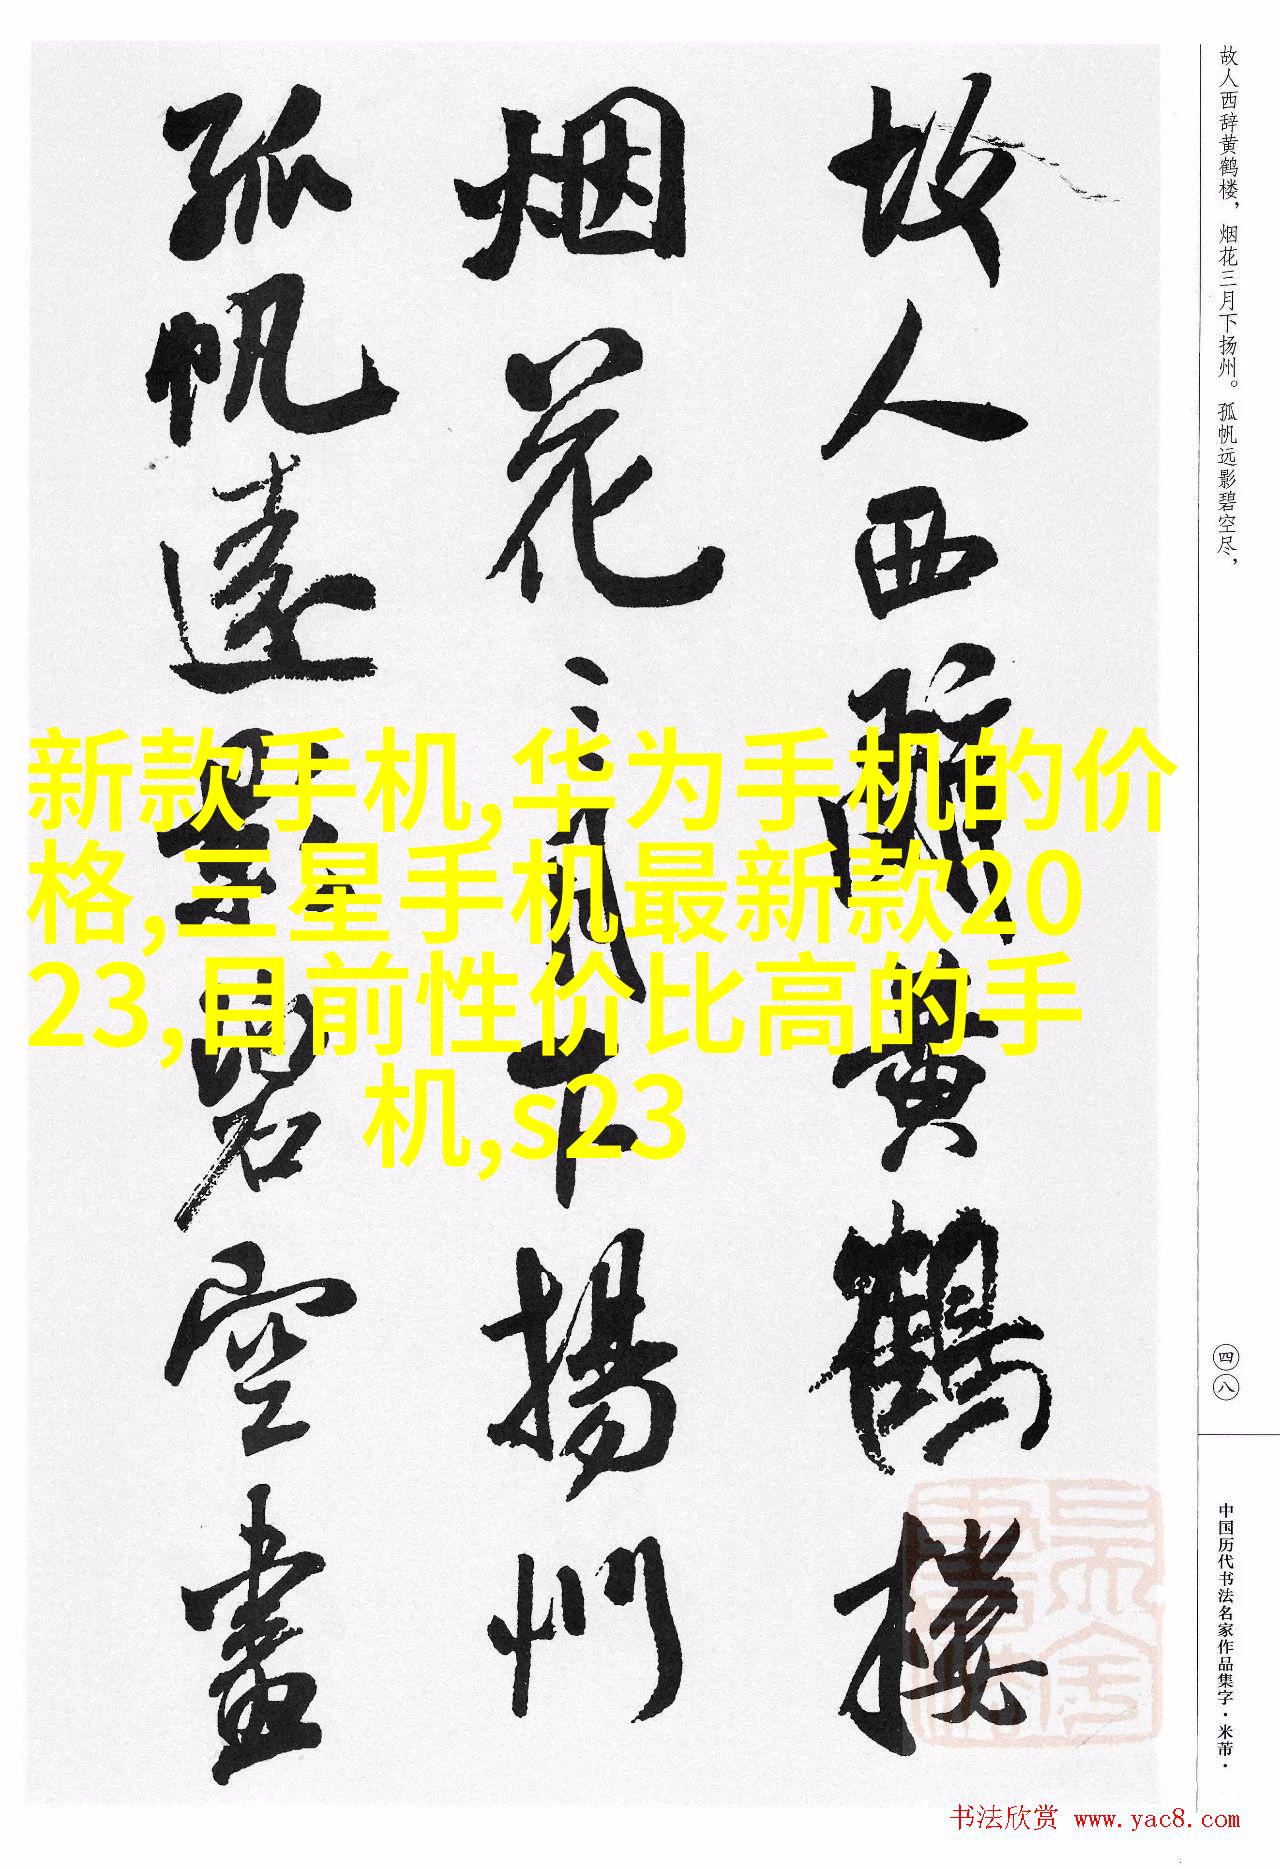 故人西辞黄鹤楼，烟花三月下扬州。孤帆远影碧空尽，
故人西辭黄鹤楼
烟花三月下揚州
孤帆遠影碧空盡
新款手机,华为手机的价
格,三星手机最新款20
23,目前性价比高的手
机,s23
四八
中国历代书法名家作品集字·米芾·
书法欣赏 www.yac8.com